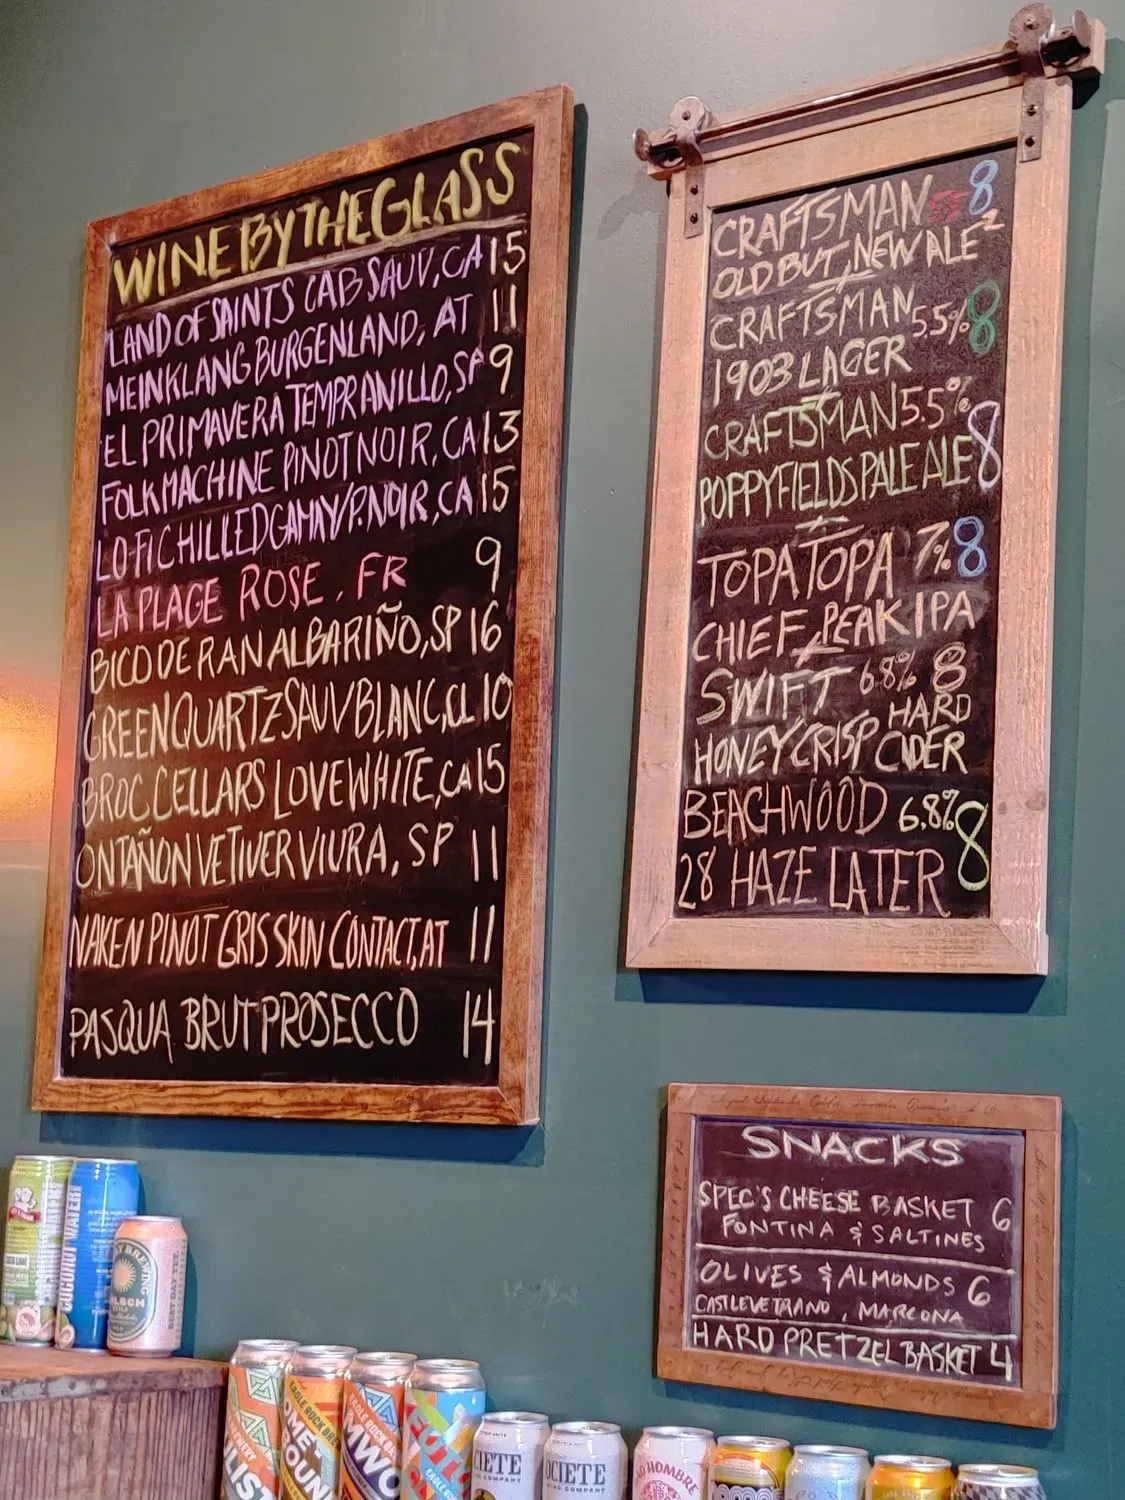 WINE BY THE GLASS
LAND OF SAINTS CAB SAUV, CA 15
MEINKLANG BURGENLAND, AT 11
EL PRIMAVERA TEMPRANILLO, SP 9
FOLKMACHINE PINOT NOIR, CA 13
LO FI CHILLED GAMAY/P.NOIR, CA 15
LA PLACE ROSE, FR 9
BICO DE RAN ALBARIÑO, SP 16
GREEN QUARTZ SAUV BLANC, CL 10
BROC CELLARS LOVE WHITE, CA 15
ONTAÑON VETIVER VIURA, SP 11
NAKEN PINOT GRIS SKIN CONTACT, AT 11
PASQUA BRUT PROSECCO 14
CRAFTSMAN 5.5 8
OLD BUT NEW ALE 2
CRAFTSMAN 5.5% 8
1903 LAGER
CRAFTSMAN 5.5%
POPPYFIELDS PALE ALE 8
TOPA TOPA 7% 8
CHIEF PEAK IPA
SWIFT 6.8% 8
HARD
HONEYCRISP CIDER
BEACHWOOD 6.8% 8
28 HAZE LATER
SNACKS
SPEC'S CHEESE BASKET 6
FONTINA & SALTINES
OLIVES & ALMONDS 6
CASTLEVETRANO, MARCONA
HARD PRETZEL BASKET 4
COCONUT WATER
EAGLE ROCK
CIETE
OCIETE
HOMBRE